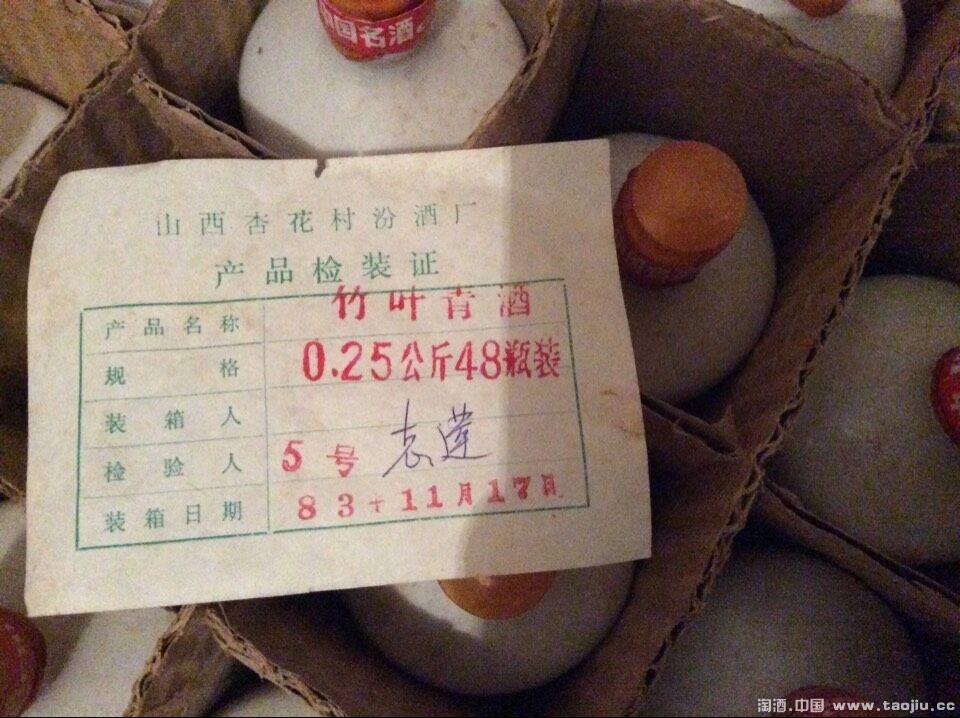 国名酒
山西杏花村汾酒厂
产品检装证
产品名称 竹叶青酒
规格 0.25公斤48瓶装
装箱人
检验人 5号 志莲
装箱日期 83年11月17日
淘酒.中国 www.taojiu.cc